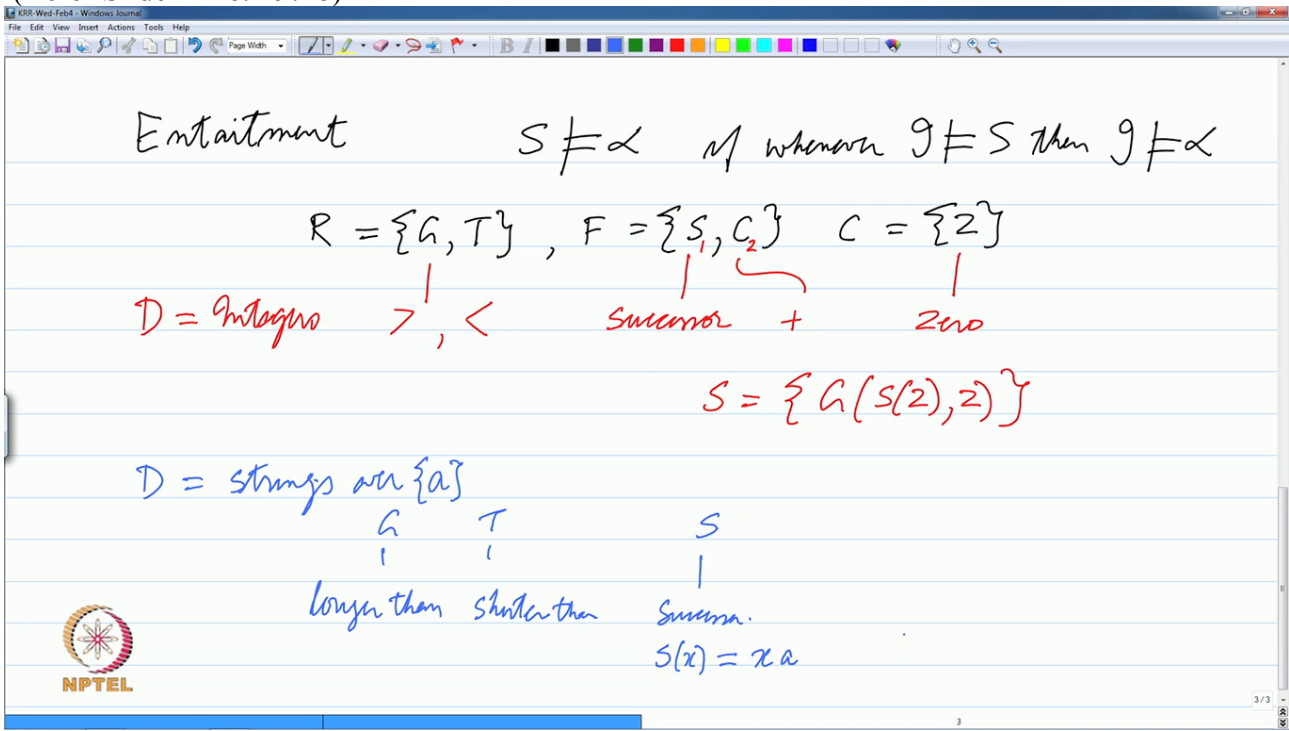 KRR-Wed-Feb4 - Windows Journal
File Edit View Insert Actions Tools Help
Page Width
Entailment S ⊨ α if whenever ϑ ⊨ S then ϑ ⊨ α
R = {G, T} , F = {S₁, C₂} C = {Z}
D = Integers > , < successor + zero
S = {G(S(Z), Z)}
D = strings over {a}
G T S
longer than shorter than Successor.
S(x) = x a
NPTEL
3 / 3
3